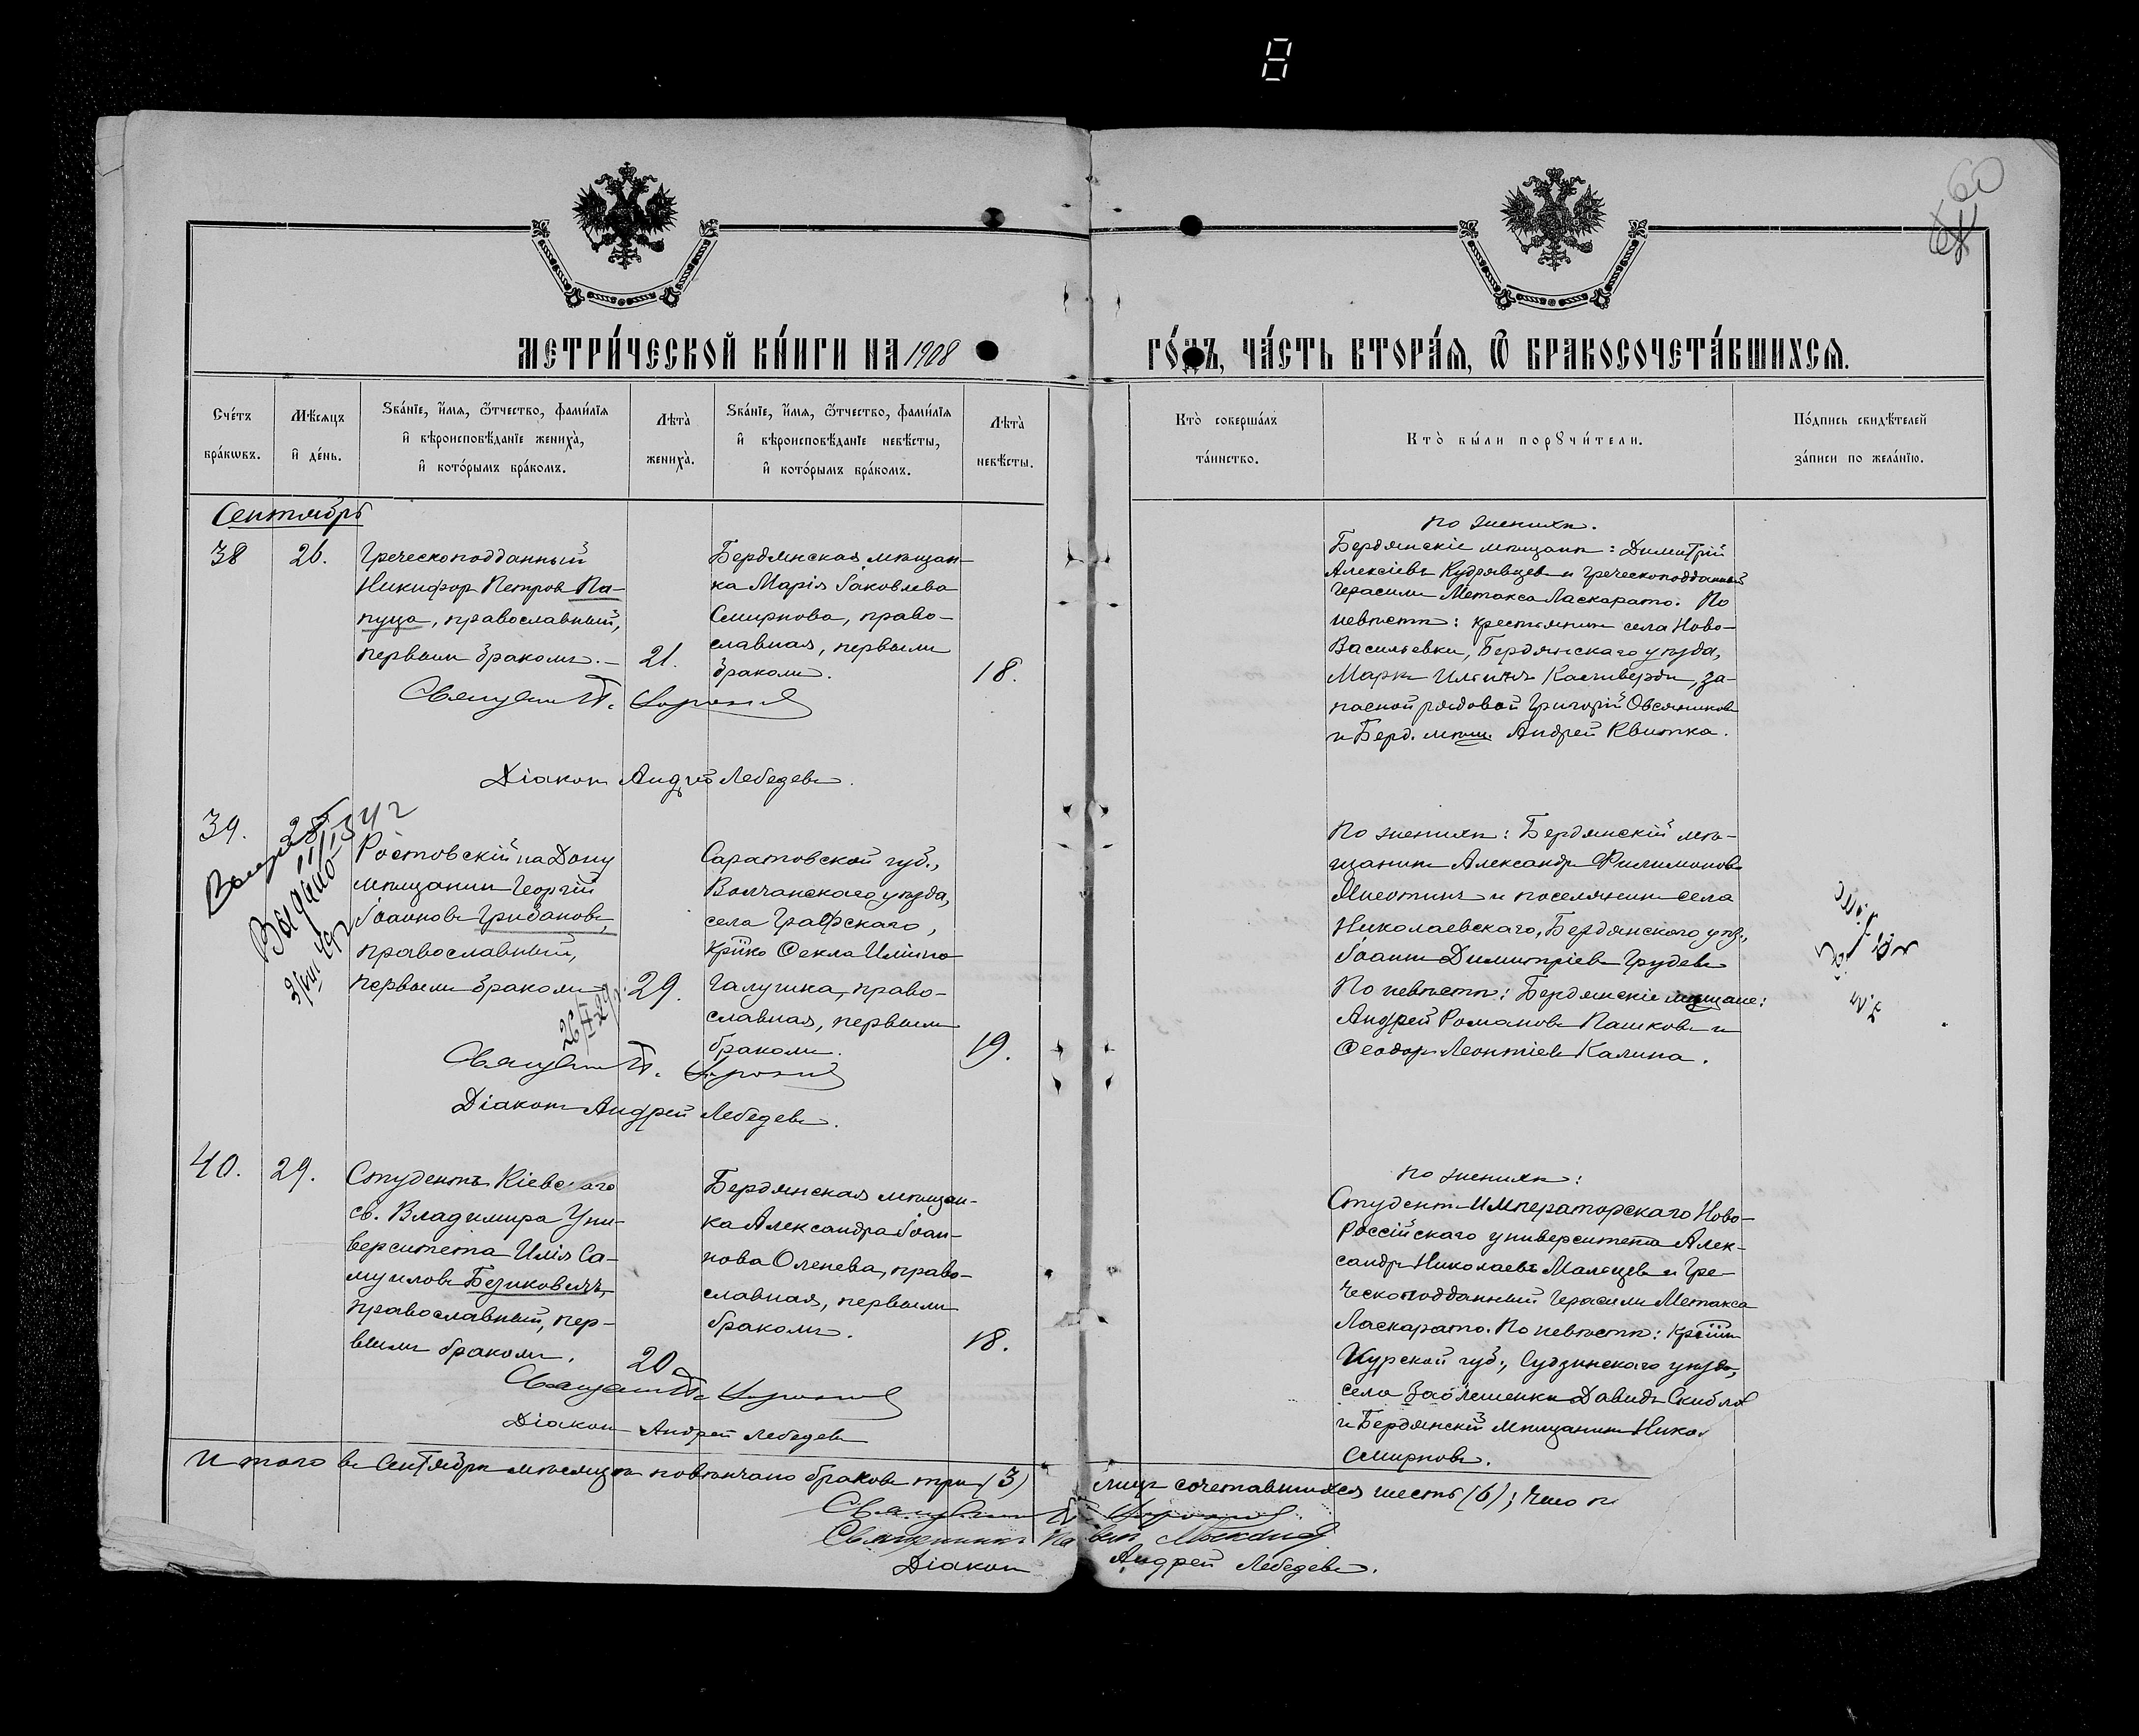 8
60
МЕТРИ́ЧЕСКОЙ КНИ́ГИ НА 1908
ГО́ДЪ, ЧА́СТЬ ВТОРА́Я, Ѿ БРАКОСОЧЕТА́ВШИХСЯ.
Сче́тъ
бра́ковъ.
Мѣ́сяцъ
и҆ де́нь.
Ѕва́нїе, и҆́мя, ѻ҆́тчество, фами́лїя
и҆ вѣроисповѣ́данїе жениха̀,
и҆ кото́рымъ бра́комъ.
Лѣ́та̀
жениха̀.
Ѕва́нїе, и҆́мя, ѻ҆́тчество, фами́лїя
и҆ вѣроисповѣ́данїе невѣ́сты,
и҆ кото́рымъ бра́комъ.
Лѣ́та̀
невѣ́сты.
Кто̀ соверша́лъ
та́инство.
Кто̀ бы́ли порꙋчи́тели.
По́дпись свидѣ́телей
за́писи по жела́нїю.
Сентябрь
38
26.
Греческоподданный
Никифоръ Петровъ Па-
пуца, православный,
первымъ бракомъ.
21.
Бердянская мѣщан-
ка Марія Іаковлева
Смирнова, право-
славная, первымъ
бракомъ.
18.
По женихѣ.
Бердянскіе мѣщане: Димитрій
Алексіевъ Кудрявцевъ и греческоподданный
Герасимъ Метакса Ласкарато. По
невѣстѣ: крестьянинъ села Ново-
Васильевки, Бердянскаго уѣзда,
Маркъ Ильинъ, за-
пасной рядовой Григорій Овсянниковъ
и Берд. мѣщ. Андрей Квитка.
Діаконъ Андрей Лебедевъ.
39.
28
Ростовскій на Дону
мѣщанинъ Георгій
Іоанновъ Грибановъ,
православный,
первымъ бракомъ
29.
Саратовской губ.,
Волчанскаго уѣзда,
села Графскаго,
кр҃нка Ѳекла Иліина
Галушка, право-
славная, первымъ
бракомъ.
19.
По женихѣ: Бердянскій мѣ-
щанинъ Александръ Филимоновъ
и поселянинъ села
Николаевскаго, Бердянскаго уѣз.,
Іоаннъ Димитріевъ Грудевъ
По невѣстѣ: Бердянскіе мѣщане:
Андрей Романовъ Пашковъ и
Ѳеодоръ Леонтіевъ Калина.
Діаконъ Андрей Лебедевъ.
40.
29.
Студентъ Кіевскаго
св. Владимира Уни-
верситета Илія Са-
муиловъ Безиковичъ,
православный, пер-
вымъ бракомъ.
20
Бердянская мѣщан-
ка Александра Іоан-
нова Оленева, право-
славная, первымъ
бракомъ.
18.
По женихѣ:
Студентъ Императорскаго Ново-
россійскаго университета Алек-
сандръ Николаевъ Мальцевъ и гре-
ческоподданный Герасимъ Метакса
Ласкарато. По невѣстѣ: кр҃нинъ
Курской губ., Суджинскаго уѣзда,
села Заолешенки Давидъ
и Бердянскій мѣщанинъ
Смирновъ.
Діаконъ Андрей Лебедевъ
Итого въ Сентябрѣ мѣсяцѣ повѣнчано браковъ три (3)
лицъ сочетавшихся шесть (6);
Священникъ
Діаконъ Андрей Лебедевъ.